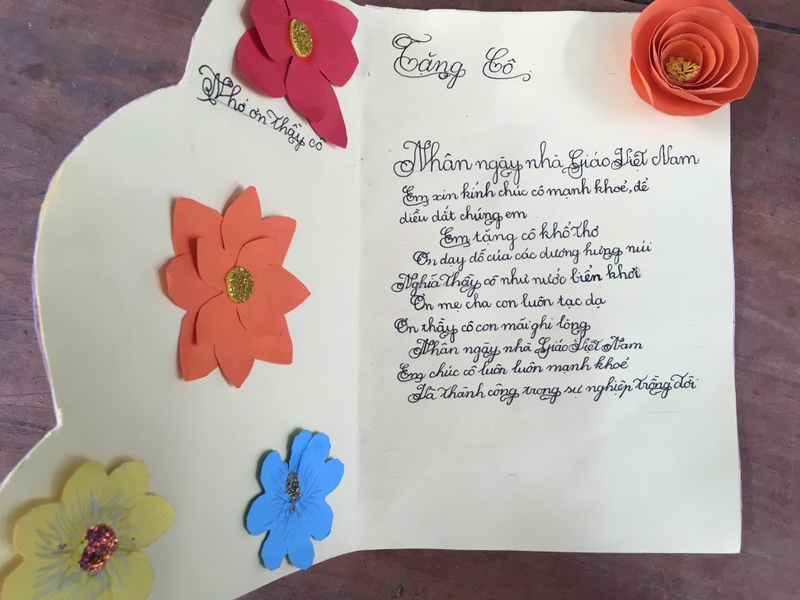 Nhớ ơn thầy cô
Tặng Cô
Nhân ngày nhà Giáo Việt Nam
Em xin kính chúc cô mạnh khoẻ, để
diều dắt chúng em
Em tặng cô khổ thơ
Ơn dạy dỗ của các dương hưng núi
Nghĩa thầy cô như nước biển khơi
Ơn mẹ cha con luôn tạc dạ
Ơn thầy cô con mãi ghi lòng
Nhân ngày nhà Giáo Việt Nam
Em chúc cô luôn luôn mạnh khoẻ
Và thành công trong sự nghiệp trồng